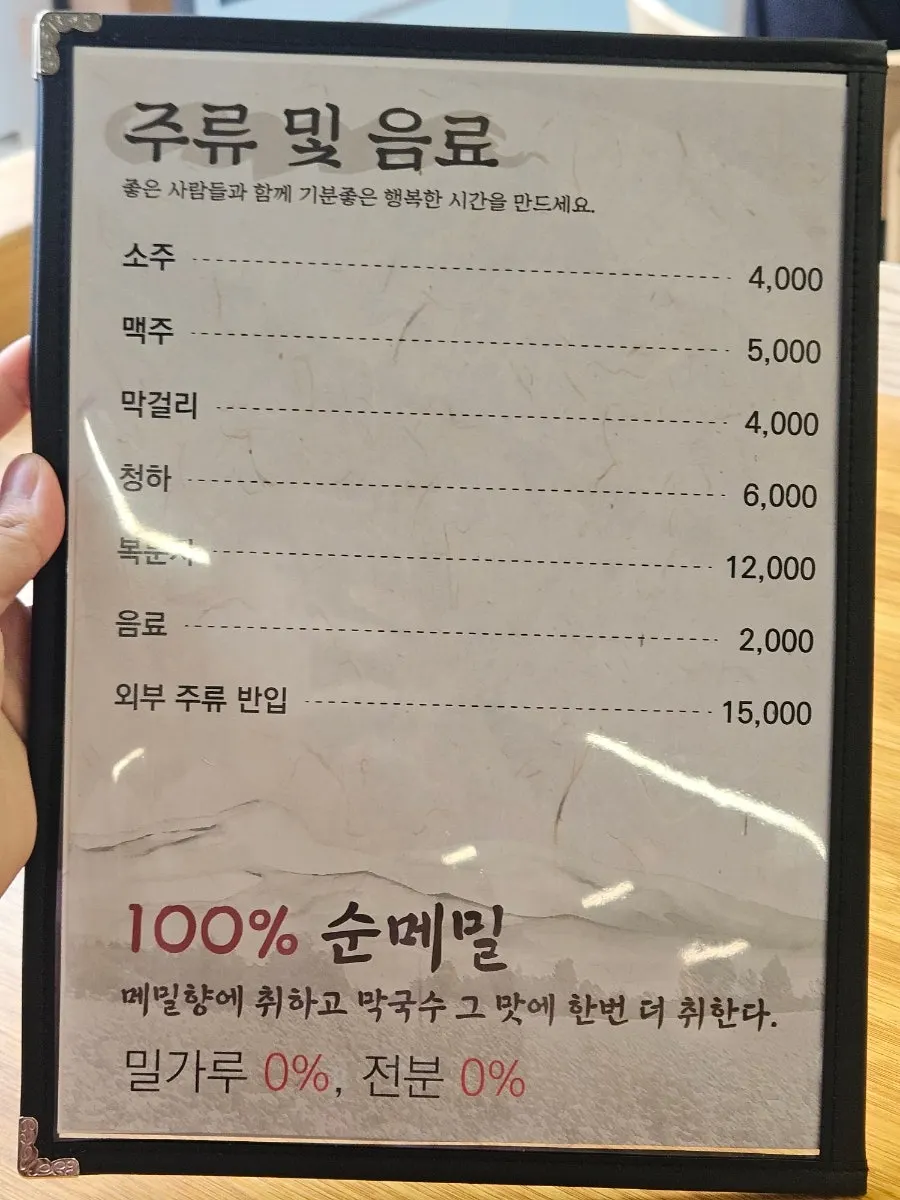 주류 및 음료
좋은 사람들과 함께 기분좋은 행복한 시간을 만드세요.
소주 4,000
맥주 5,000
막걸리 4,000
청하 6,000
복분자 12,000
음료 2,000
외부 주류 반입 15,000
100% 순메밀
메밀향에 취하고 막국수 그 맛에 한번 더 취한다.
밀가루 0%, 전분 0%